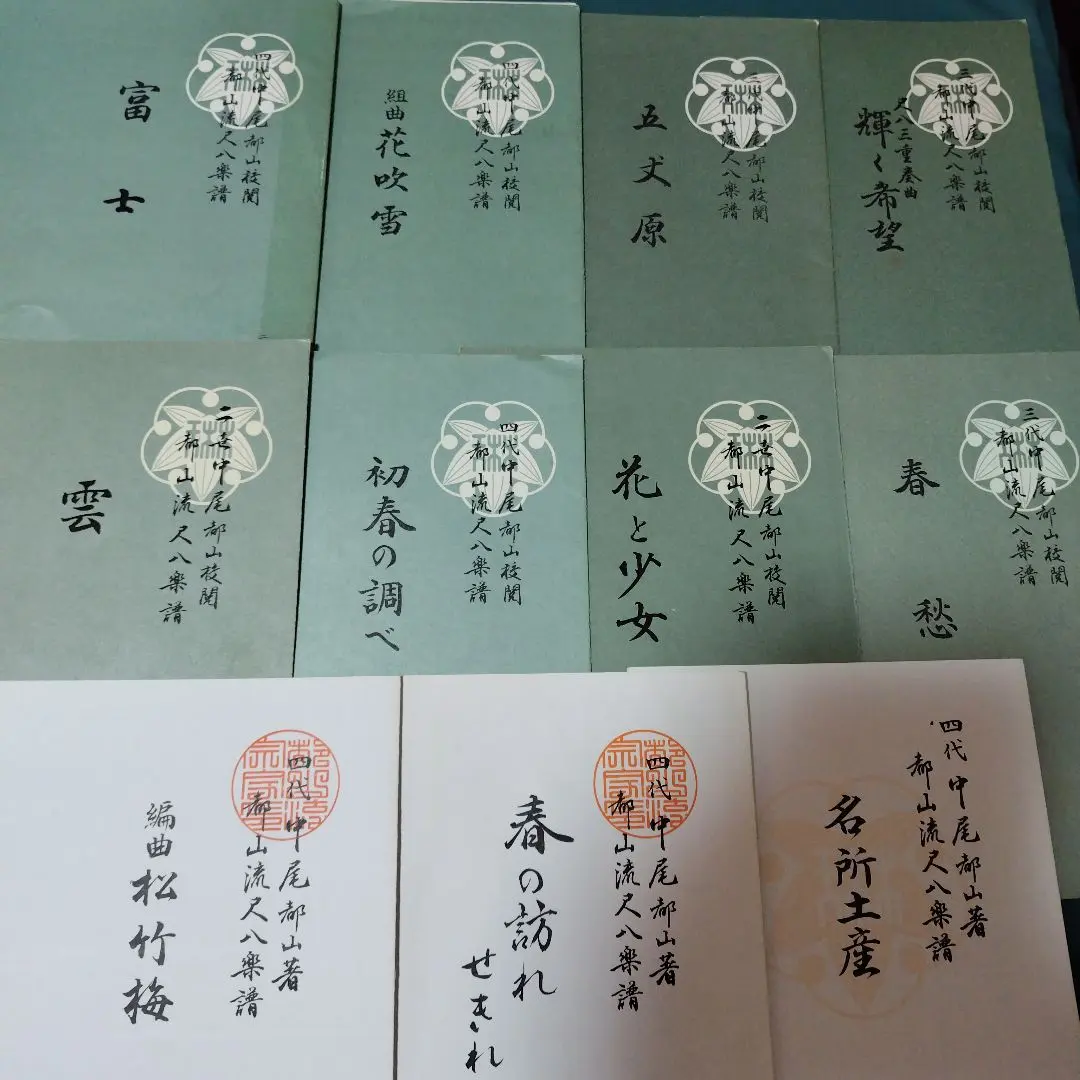 四代中尾都山校閲
都山流尺八楽譜
富士
四代中尾都山校閲
都山流尺八楽譜
組曲 花吹雪
三代中尾都山校閲
都山流尺八楽譜
五丈原
三代中尾都山校閲
都山流尺八楽譜
尺八三重奏曲
輝く希望
二世中尾都山校閲
都山流尺八楽譜
雲
四代中尾都山校閲
都山流尺八楽譜
初春の調べ
二世中尾都山校閲
都山流尺八楽譜
花と少女
三代中尾都山校閲
都山流尺八楽譜
春愁
四代中尾都山著
都山流尺八楽譜
編曲 松竹梅
四代中尾都山著
都山流尺八楽譜
春の訪れ
せきれ
四代中尾都山著
都山流尺八楽譜
名所土産